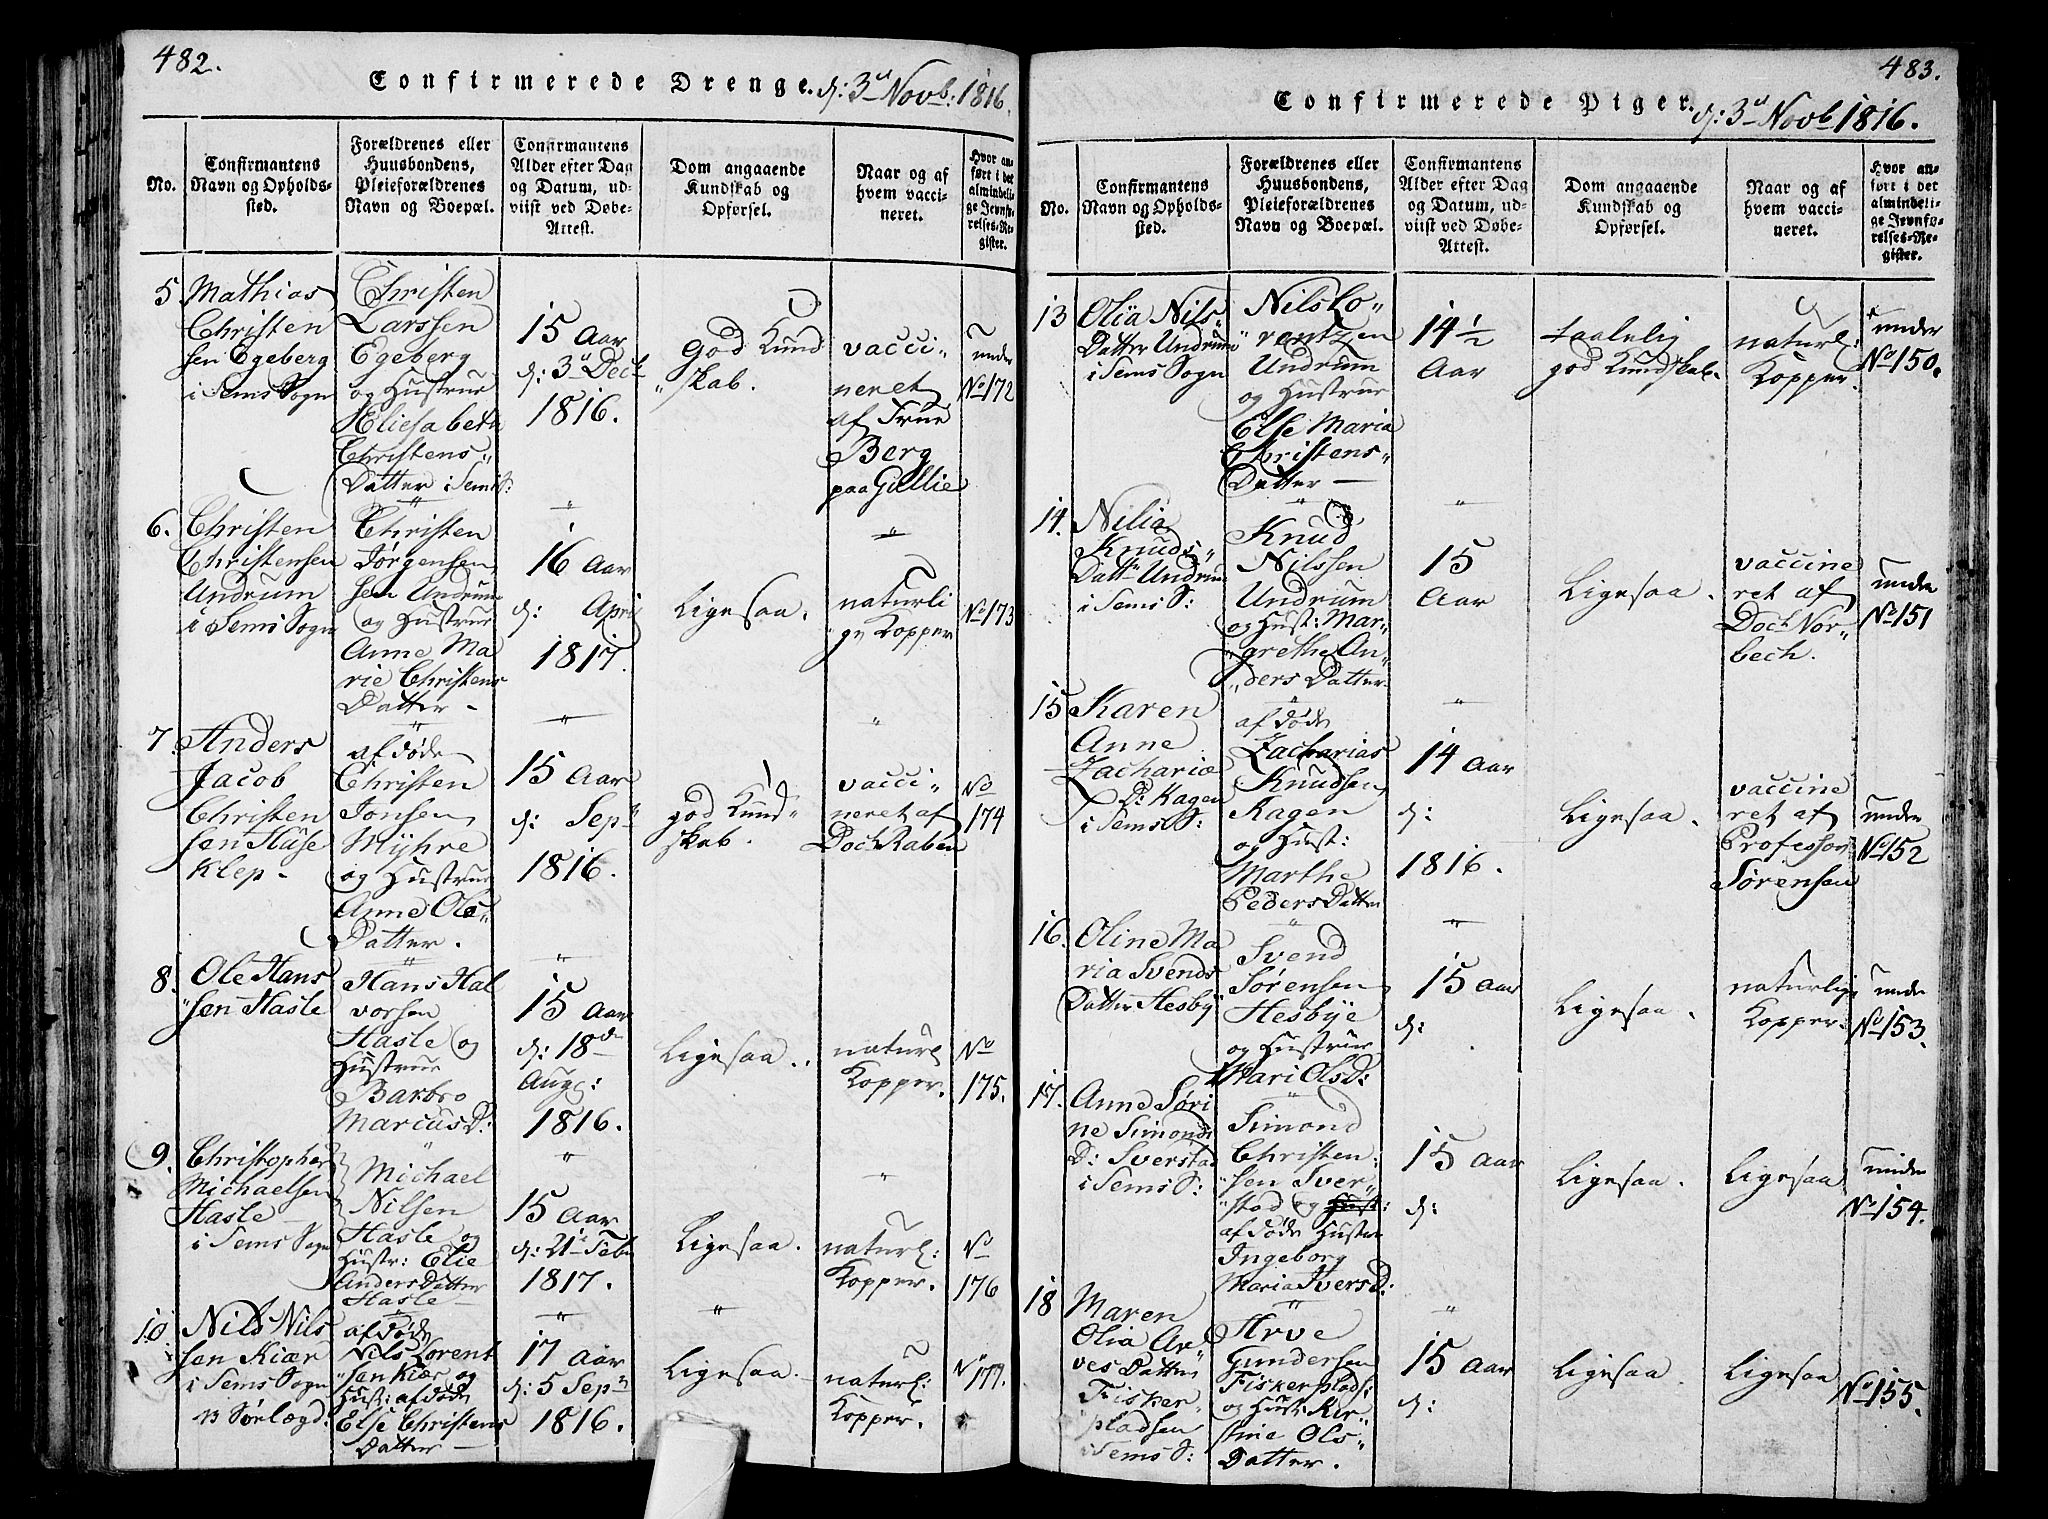 482.
Confirmerede Drenge. d: 3die Novb: 1816.
No.
Confirmantens
Navn og Opholds-
sted.
Forældrenes eller
Huusbondens,
Pleieforældrenes
Navn og Boepæl.
Confirmantens
Alder efter Dag
og Datum, ud-
viist ved Døbe-
Attest.
Dom angaaende
Kundskab og
Opførsel.
Naar og af
hvem vacci-
neret.
Hvor an-
ført i det
almindeli-
ge Jevnfø-
relses-Re-
gister.
5
Mathias
Christen
sen Egeberg
i Sems Sogn
Christen
Larssen
Egeberg
og Hustrue
Eliesabeth
Christens„
Datter i Sems S:
15 Aar
d: 3die Decb
1816.
God Kund
„skab.
vacci„
neret
af Frue
Berg
paa Gullie
under
No 172
6.
Christen
Christensen
Undrum
i Sems Sogn
Christen
Jörgensen
sen Undrum
og Hustrue
Anne Ma
rie Christens
Datter –
16 Aar
d: April
1817.
Ligesaa.
naturli
„ge Kopper
No 173
7.
Anders
Jacob
Christen
sen Hase
klep –
afdöde
Christen
Jonsen
Myhre
og Hustrue
Anne Ols„
Datter.
15 Aar
d: Sepr
1816.
god Kund„
skab.
vacci„
neret af
Doct Raben
No
174
8.
Ole Hans
„sen Hasle
Hans Hal
vorsen
Hasle og
Hustrue
Barbro
Marcus D:
15 Aar
d: 18de
Aug:
1816.
Ligesaa.
naturl
Kopper.
No
175.
9.
Christopher
Michaelsen
Hasle
i Sems Sogn
Michael
Nilsen
Hasle og
Hustr: Elie
Anders Datter
Hasle –
15 Aar
d: 21 Febr
1817.
Ligesaa.
naturl:
Kopper.
No
176
10
Nils Nils
sen Kiær
i Sems Sogn
13 Sørlægd:
afdöde
Nils Lorent
„sen Kiær og
Hust: afdöde
Else Christens
Datter –
17 Aar
d: 5 Sepr
1816.
Ligesaa.
naturl:
Kopper.
No 177.
483.
Confirmerede Piger. d: 3die Novb 1816.
No.
Confirmantens
Navn og Opholds-
sted.
Forældrenes eller
Huusbondens,
Pleieforældrenes
Navn og Boepæl.
Confirmantens
Alder efter Dag
og Datum, ud-
viist ved Døbe-
Attest.
Dom angaaende
Kundskab og
Opførsel.
Naar og af
hvem vacci-
neret.
Hvor an-
ført i det
almindeli-
ge Jevnfø-
relses-Re-
gister.
13
Olia Nils„
Datter Undrum
i Sems Sogn
Nils Lo„
„rentzen
Undrum
og Hustrue
Else Maria
Christens„
Datter –
14½
Aar
taalelig
god Kundskab.
naturl:
Kopper.
under
No 150.
14.
Nilia
Knuds„
Dattr Undrum
i Sems S:
Knud
Nilssen
Undrum
og Hust: Mar„
„grethe An„
„ders Datter
15
Aar
Ligesaa.
vaccine
ret af
Doct Nor„
bech.
under
No 151
15
Karen
Anne
Zachariæ
D: Kagen
i Sems S:
afdöde
Zacharias
Knudsen
Kagen
og Hust:
Marthe
Peders Datter
14 Aar
d:
1816.
Ligesaa.
vaccine
ret af
Professor
Sörensen
under
No 152
16.
Oline Ma
ria Svends
Datter Hesby
Svend
Sörensen
Hesbye
og Hustrue
Mari Ols D:
15 Aar
d:
Ligesaa.
naturlige
Kopper.
under
No 153.
17.
Anne Söri
ne Simonds
D: Sverstad
i Sems S:
Simond
Christen:
„sen Sver„
„stad og Hust:
afdöde Hustrue
Ingeborg
Maria Ivers D:
15 Aar
d:
Ligesaa.
Ligesaa
under
No 154.
18
Maren
Olia Ar„
ves Datter
Fisker„
pladsen
i Sems S:
Arve
Gundersen
Fiskerplads:
og Hust: Kir„
stine Ols„
Datter.
15 Aar
d:
Ligesaa.
Ligesaa
No 155.